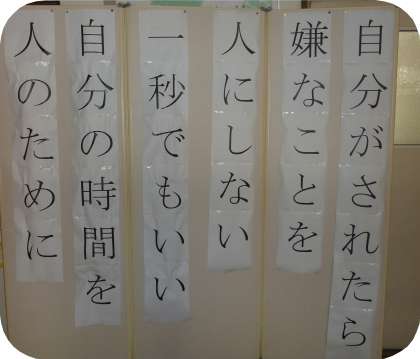 自分がされたら
嫌なことを
人にしない
一秒でもいい
自分の時間を
人のために